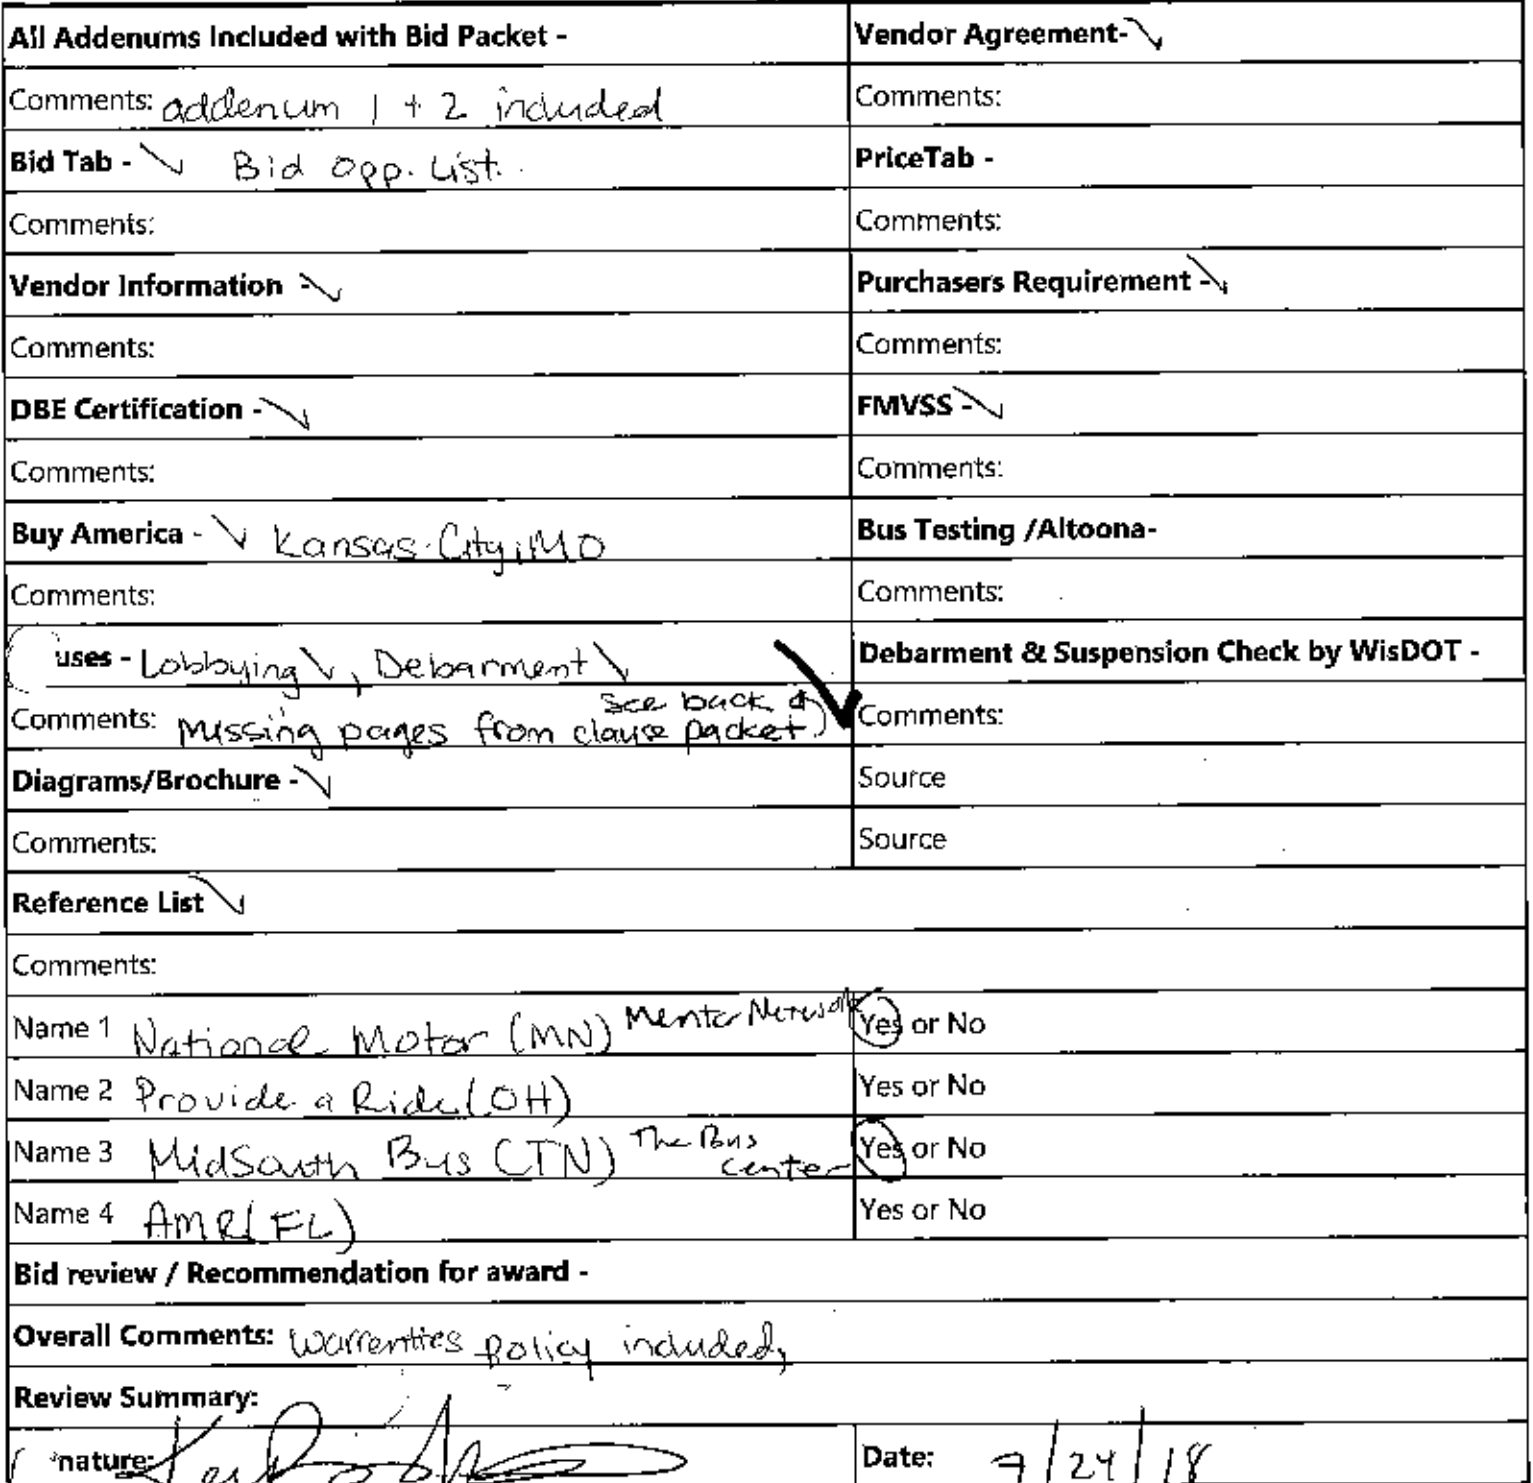 All Addenums Included with Bid Packet -
Vendor Agreement-
Comments: addenum 1 + 2 included
Comments:
Bid Tab - Bid Opp. List.
PriceTab -
Comments:
Comments:
Vendor Information -
Purchasers Requirement -
Comments:
Comments:
DBE Certification -
FMVSS -
Comments:
Comments:
Buy America - Kansas City, MO
Bus Testing /Altoona-
Comments:
Comments:
uses - Lobbying , Debarment
Debarment & Suspension Check by WisDOT -
See back
Comments: Missing pages from clause packet
Comments:
Diagrams/Brochure -
Source
Comments:
Source
Reference List
Comments:
Name 1 National Motor (MN) Mentor Network
Yes or No
Name 2 Provide a Ride (OH)
Yes or No
Name 3 MidSouth Bus (TN) The Bus
center
Yes or No
Name 4 AMR (FL)
Yes or No
Bid review / Recommendation for award -
Overall Comments: Warrenties policy included,
Review Summary:
nature:
Date: 9/24/18